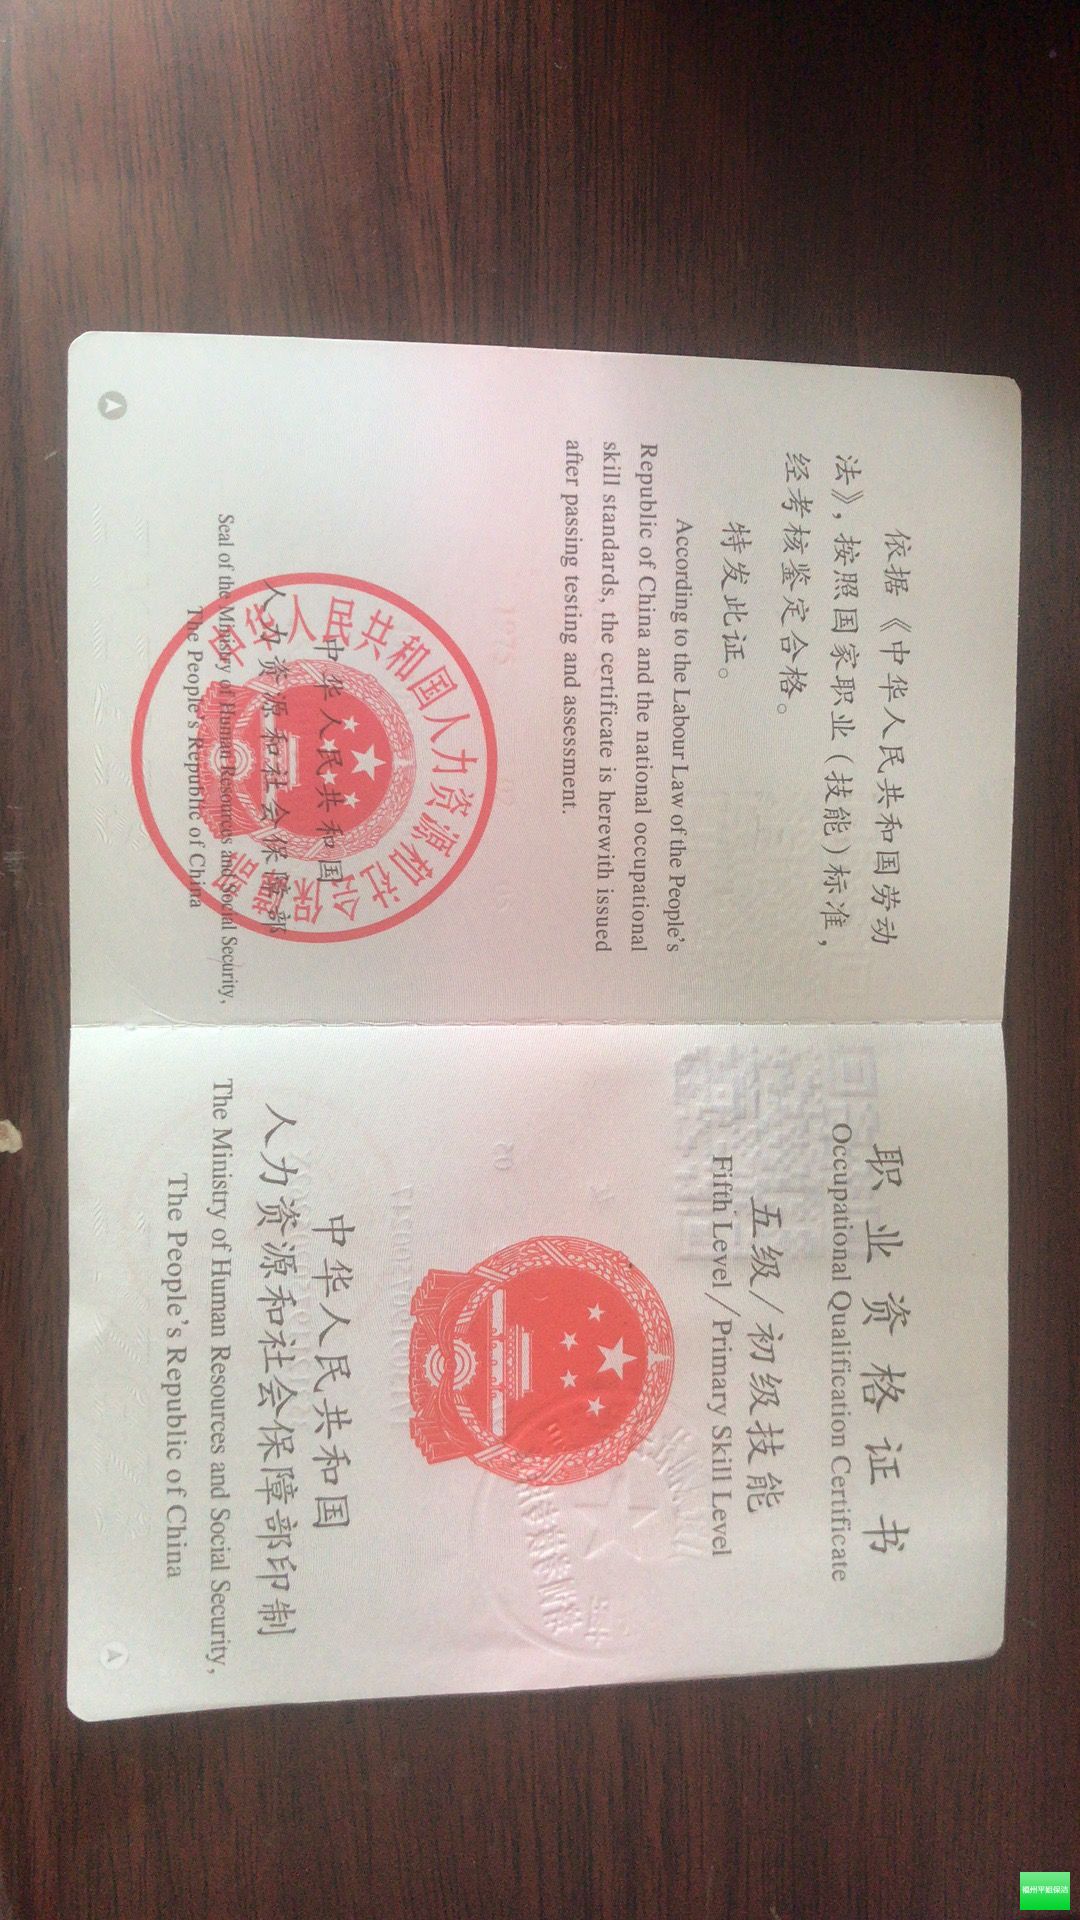 依据《中华人民共和国劳动
法》，按照国家职业（技能）标准，
经考核鉴定合格。
特发此证。
According to the Labour Law of the People's
Republic of China and the national occupational
skill standards, the certificate is herewith issued
after passing testing and assessment.
中华人民共和国人力资源和社会保障部
中华人民共和国
人力资源和社会保障部
Seal of the Ministry of Human Resources and Social Security,
The People's Republic of China
职业资格证书
Occupational Qualification Certificate
五级/初级技能
Fifth Level/Primary Skill Level
中华人民共和国
人力资源和社会保障部印制
The Ministry of Human Resources and Social Security,
The People's Republic of China
福州平姐保洁